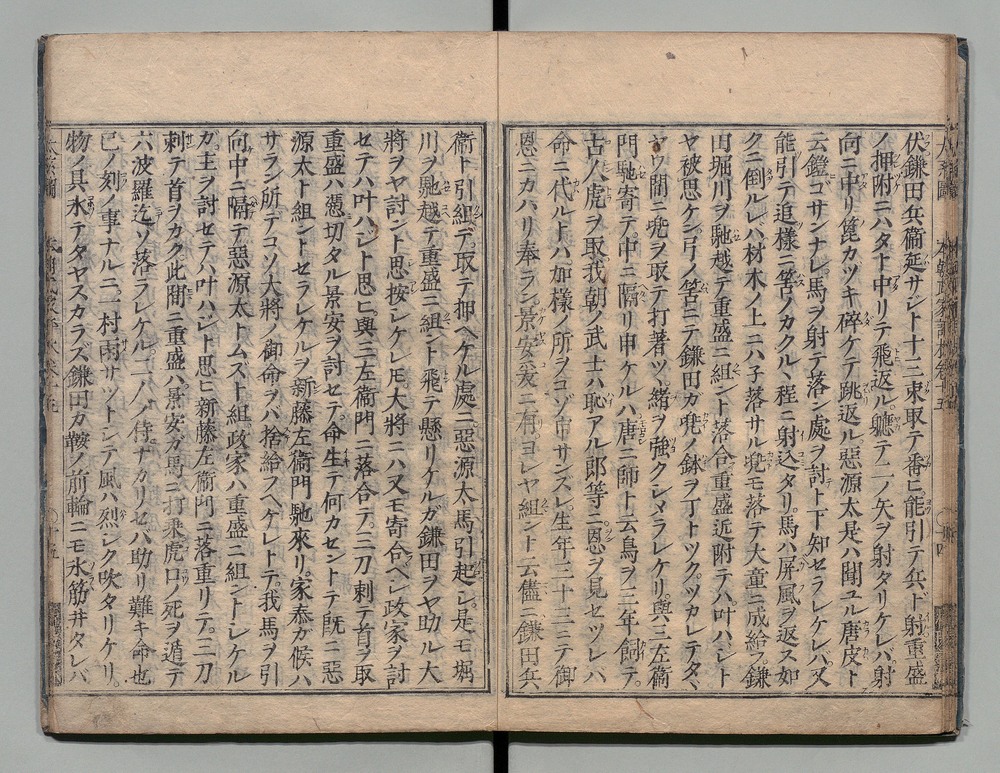 伏鎌田兵衞延サジト十三束取テ番ヒ能引テ兵ド射重盛
ノ押附ニハタト中リテ飛返ル軈テ二ノ矢ヲ射タリケレバ射
向ニ中リ篦カツキ碎ケテ跳返ル惡源太是ハ聞ユル唐皮ト
云鎧ゴサンナレ馬ヲ射テ落ン處ヲ討ト下知セラレケレバ又
能引テ追様ニ筈ノカクルヽ程ニ射込タリ馬ハ屏風ヲ返ス如
クニ倒ルレハ材木ノ上ニハ子落サル兜モ落テ大童ニ成給フ鎌
田堀川ヲ馳越テ重盛ニ組ント落合重盛近附テハ叶ハジト
ヤ被思ケン弓ノ筈ニテ鎌田カ兜ノ鉢ヲ丁トツクツカレテタヽ
ヤウ間ニ兜ヲ取テ打著ツヽ緒ヲ強クシメラレケリ與三左衞
門馳寄テ中ニ隔リ申ケルハ唐ニ師ト云鳥ヲ三年飼テ
古人虎ヲ取我朝ノ武士ハ恥アル郎等ニ恩ヲ見セツレバ
命ニ代ルトハ加様ノ所ヲコソ申サンズレ生年二十三ニテ御
恩ニカハリ奉ラン景安爰ニ有ヨレヤ組ント云儘ニ鎌田兵
衞ト引組デ取テ押ヘケル處ニ惡源太馬引起シ是モ堀
川ヲ馳越テ重盛ニ組ント飛テ懸リケルガ鎌田ヲヤ助ル大
將ヲヤ討ント思按シケレ𪜈大將ニハ又モ寄合ヘシ政家ヲ討
セテハ叶ハジト思ヒ與三左衞門ニ落合テ三刀刺テ首ヲ取
重盛ハ憑切タル景安ヲ討セテ命生テ何カセントテ既ニ惡
源太ト組ントセラレケルヲ新藤左衞門馳來リ家泰ガ候ハ
サラン所デコソ大將ノ御命ヲバ捨給フヘケレトテ我馬ヲ引
向中ニ隔テ惡源太トムズト組政家ハ重盛ニ組ントシケル
ガ主ヲ討セテハ叶ハジト思ヒ新藤左衞門ニ落重リテ三刀
刺テ首ヲカク此間ニ重盛ハ景安ガ馬ニ打乗虎口ノ死ヲ遁テ
六波羅迄ゾ落ラレケル二人ノ侍ナカリセハ助リ難キ命也
巳ノ刻ノ事ナルニ一村雨サットシテ風ハ烈シク吹タリケリ
物ノ具氷テタヤスカラズ鎌田カ鞍ノ前輪ニモ氷筋井タレバ